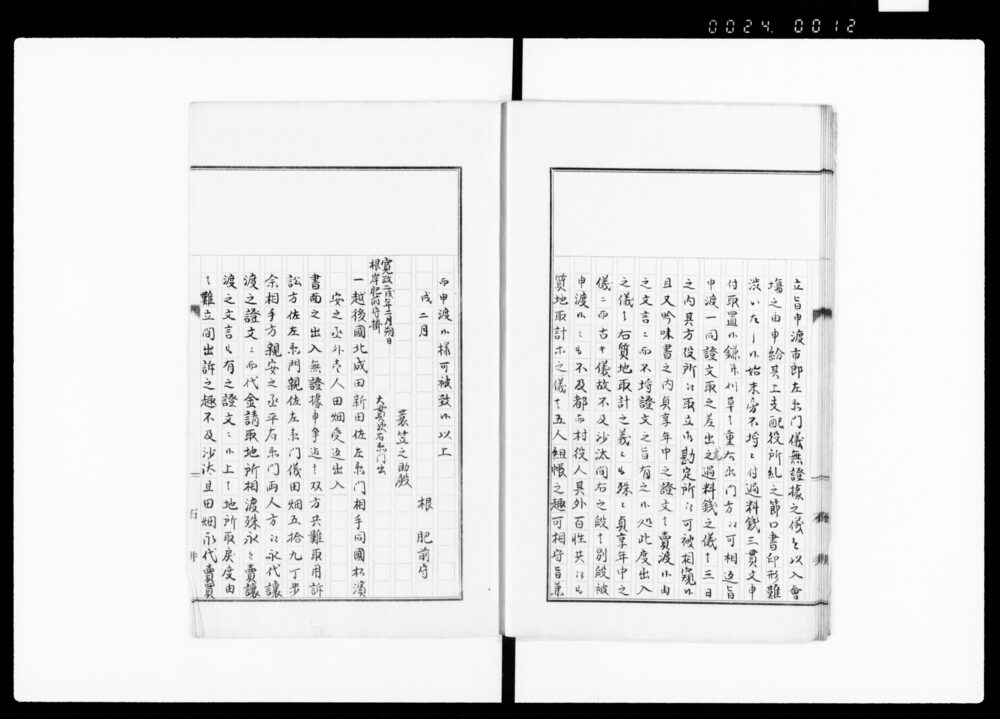 0024. 0012
立旨申渡市郎左衛門儀無證據之儀を以入會
場之由申紛其上支配役所糺之節口書印形難
渋いたし候始末旁不埒ニ付過料錢三貫文申
付取置候鎌并刈草ハ重右衛門方江可相返旨
申渡一同證文取之差出之過料錢之儀ハ三日
之内其方役所江取立御勘定所江可被相窺候
且又吟味書之内貞享年中之證文ニ賣渡候由
之文言ニ而不埒證文之旨有之候処此度出入
之儀ハ右質地取計之義ニも殊ニ貞享年中之
儀ニ而古キ儀故不及沙汰間右之段ハ別段被
申渡候ニも不及都而村役人其外百性共江も
質地取計等之儀ハ五人組帳之趣可相守旨兼
而申渡候樣可被致候以上
戌二月
根 肥前守
蓑笠之助殿
寛政二戌年二月朔日
根岸肥前守掛
大貫次右衛門出
一越後國北成田新田佐左衛門相手同國松濱
安之丞外壱人田畑受返出入
書面之出入無證據申争迄ニ双方共難取用訴
訟方佐左衛門親佐左衛門儀田畑五拾九丁步
余相手方親安之丞平右衛門両人方江永代讓
渡之證文ニ而代金請取地所相渡殊永々賣讓
渡之文言も有之證文ニ候上ハ地所取戻度由
ハ難立間出訴之趣不及沙汰且田畑永代賣買